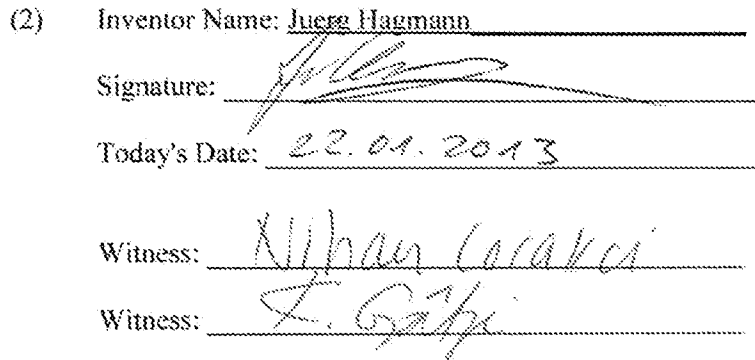 (2) Inventor Name: Juerg Hagmann
Signature:
Today's Date: 22.01.2013
Witness: Nihan
Witness: